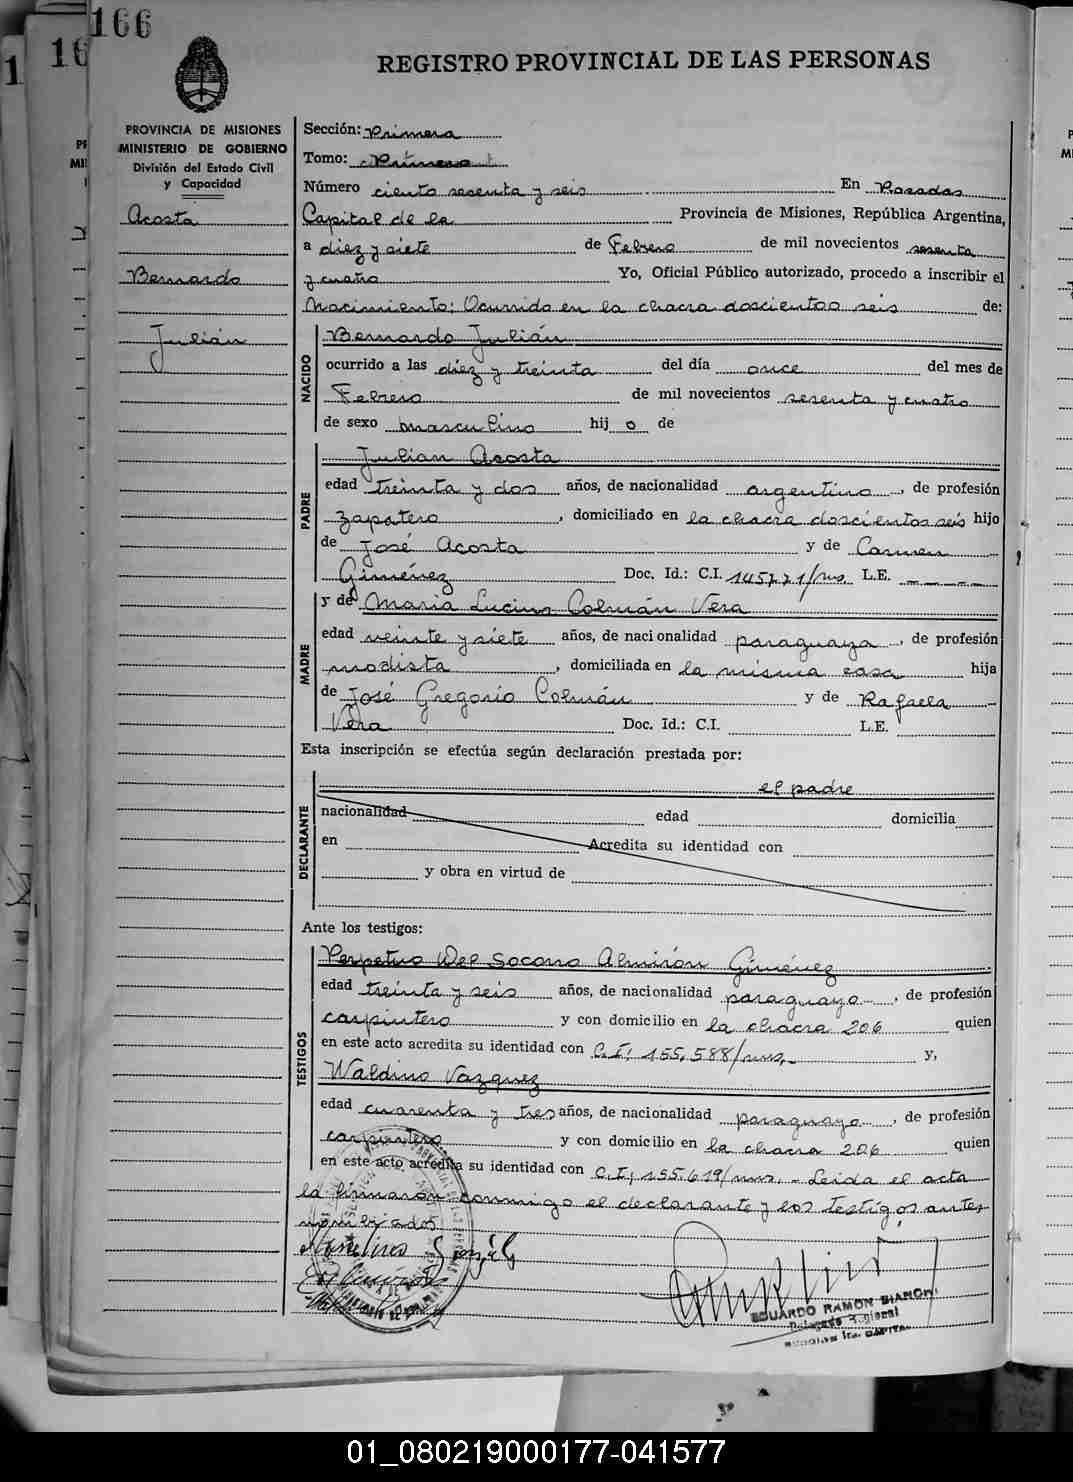 166
16
1
REGISTRO PROVINCIAL DE LAS PERSONAS
PROVINCIA DE MISIONES
MINISTERIO DE GOBIERNO
División del Estado Civil
y Capacidad
Acosta
Bernardo
Julián
Sección: Primera
Tomo: Primero
Número ciento sesenta y seis En Posadas
Capital de la Provincia de Misiones, República Argentina,
a diez y siete de Febrero de mil novecientos sesenta
y cuatro Yo, Oficial Público autorizado, procedo a inscribir el
Nacimiento: Ocurrido en la chacra doscientos seis de:
NACIDO
Bernardo Julián
ocurrido a las diez y treinta del día once del mes de
Febrero de mil novecientos sesenta y cuatro
de sexo masculino hij o de
PADRE
Julian Acosta
edad treinta y dos años, de nacionalidad argentino, de profesión
zapatero, domiciliado en la chacra doscientos seis hijo
de José Acosta y de Carmen
Giménez Doc. Id.: C.I. 145771/ms L.E.
MADRE
y de María Colmán Vera
edad veinte y siete años, de nacionalidad paraguaya, de profesión
modista, domiciliada en la misma casa hija
de José Gregorio Colmán y de Rafaela
Vera Doc. Id.: C.I. L.E.
Esta inscripción se efectúa según declaración prestada por:
DECLARANTE
el padre
nacionalidad edad domicilia
en Acredita su identidad con
y obra en virtud de
Ante los testigos:
TESTIGOS
Perpetuo Del Socorro Almirón Giménez
edad treinta y seis años, de nacionalidad paraguayo, de profesión
carpintero y con domicilio en la chacra 206 quien
en este acto acredita su identidad con C.I; 155.588/mns.- y,
Waldino Vazquez
edad cuarenta y tres años, de nacionalidad paraguayo, de profesión
carpintero y con domicilio en la chacra 206 quien
en este acto acredita su identidad con C.I; 155.619/mns.- Leida el acta
la firmaron conmigo el declarante y los testigos ante,
nombrados
EDUARDO RAMON BIANCHI
Delegado Regional
01_080219000177-041577